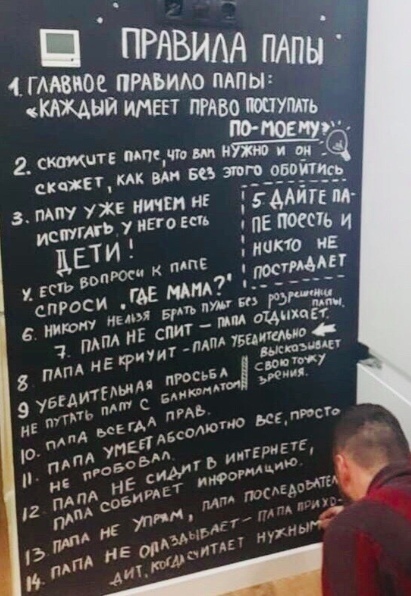 ПРАВИЛА ПАПЫ
1. ГЛАВНОЕ ПРАВИЛО ПАПЫ:
"КАЖДЫЙ ИМЕЕТ ПРАВО ПОСТУПАТЬ
ПО-МОЕМУ"
2. СКАЖИТЕ ПАПЕ, ЧТО ВАМ НУЖНО И ОН
СКАЖЕТ, КАК ВАМ БЕЗ ЭТОГО ОБОЙТИСЬ
3. ПАПУ УЖЕ НИЧЕМ НЕ
ИСПУГАТЬ, У НЕГО ЕСТЬ
ДЕТИ!
4. ЕСТЬ ВОПРОСИ К ПАПЕ
СПРОСИ "ГДЕ МАМА?"
5 ДАЙТЕ ПА-
ПЕ ПОЕСТЬ И
НИКТО НЕ
ПОСТРАДАЕТ
6. НИКОМУ НЕЛЬЗЯ БРАТЬ ПУЛЬТ БЕЗ РАЗРЕШЕНИЯ
ПАПЫ.
7. ПАПА НЕ СПИТ - ПАПА ОТДЫХАЕТ.
8. ПАПА НЕ КРИЧИТ - ПАПА УБЕДИТЕЛЬНО
ВЫСКАЗЫВАЕТ
СВОЮ ТОЧКУ
ЗРЕНИЯ.
9 УБЕДИТЕЛЬНАЯ ПРОСЬБА
НЕ ПУТАТЬ ПАПУ С БАНКОМАТОМ
10. ПАПА ВСЕГДА ПРАВ.
11. ПАПА УМЕЕТ АБСОЛЮТНО ВСЕ, ПРОСТО
НЕ ПРОБОВАЛ.
12. ПАПА НЕ СИДИТ В ИНТЕРНЕТЕ,
ПАПА СОБИРАЕТ ИНФОРМАЦИЮ.
13. ПАПА НЕ УПРЯМ, ПАПА ПОСЛЕДОВАТЕЛ
14. ПАПА НЕ ОПАЗДЫВАЕТ - ПАПА ПРИХО-
ДИТ, КОГДА СЧИТАЕТ НУЖНЫМ